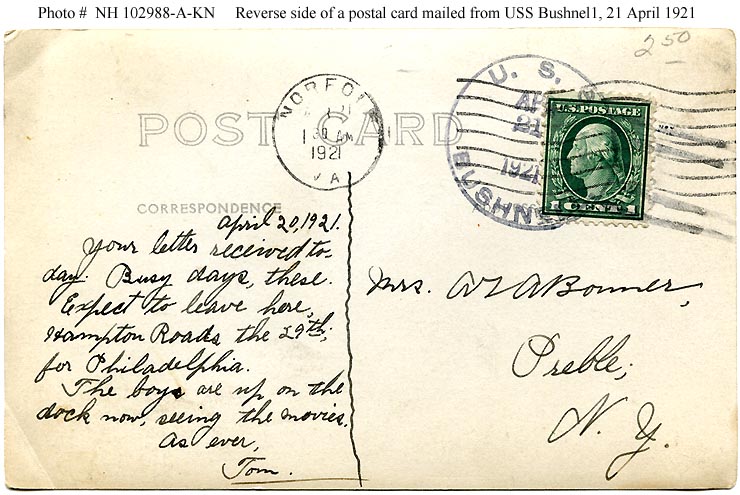 Photo # NH 102988-A-KN Reverse side of a postal card mailed from USS Bushnell, 21 April 1921
2 50
POST CARD
NORFOLK
1 30 AM
1921
VA
U. S. S.
AP
21
1921
BUSHNELL
U.S. POSTAGE
1 CENT 1
CORRESPONDENCE
April 20, 1921.
Your letter received to-
day. Busy days, these.
Expect to leave here,
Hampton Roads, the 29th,
for Philadelphia.
The boys are up on the
dock now, seeing the movies.
As ever,
Tom.
Mrs. Bonner,
Preble,
N. Y.